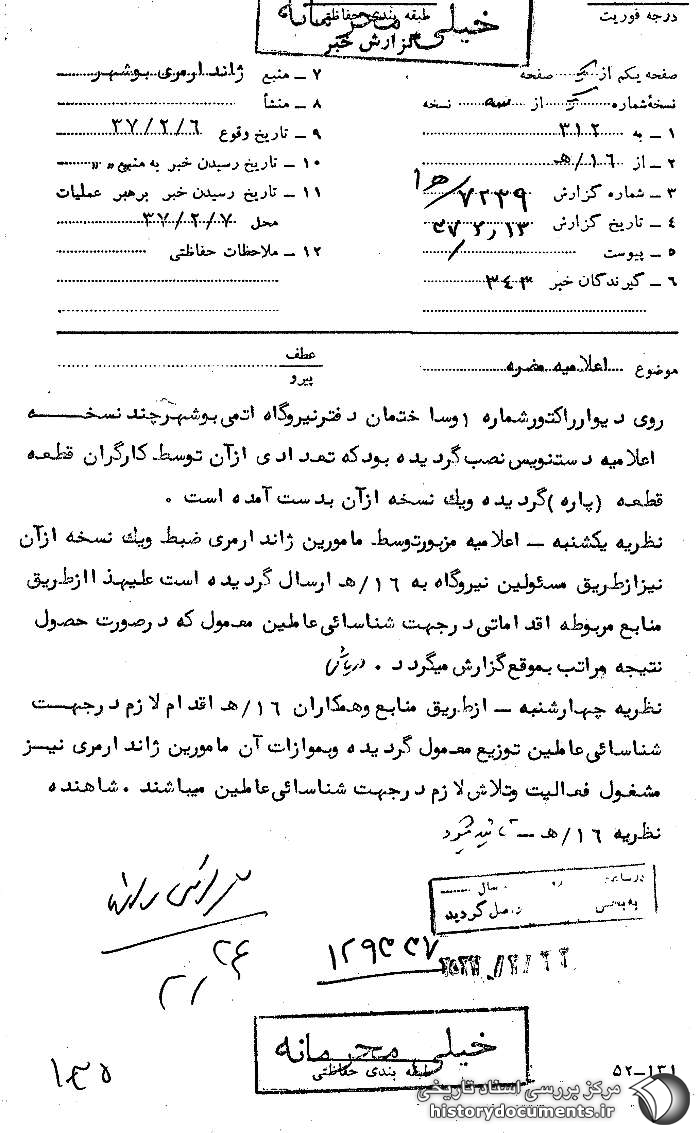 درجه فوریت
طبقه بندی حفاظتی
خیلی محرمانه
گزارش خبر
صفحه یکم از یک صفحه
نسخهٔ شماره یک از سه نسخه
۱ ــ به ۳۱۲
۲ ــ از ۱۶/هـ
۳ ــ شماره گزارش ۷۲۳۹/ه‍۱
۴ ــ تاریخ گزارش ۳۷/۲/۱۳
۵ ــ پیوست
۶ ــ گیرندگان خبر ۳۴۳
۷ ــ منبع ژاندارمری بوشهر
۸ ــ منشأ
۹ ــ تاریخ وقوع ۳۷/۲/۶
۱۰ ــ تاریخ رسیدن خبر به منبع » »
۱۱ ــ تاریخ رسیدن خبر برهبر عملیات
محل ۳۷/۲/۷
۱۲ ــ ملاحظات حفاظتی
موضوع اعلامیه مضره
عطف
پیرو
روی دیوار راکتور شماره ۱ وساختمان دفتر نیروگاه اتمی بوشهر چند نسخه
اعلامیه دستنویس نصب گردیده بود که تعدادی ازآن توسط کارگران قطعه
قطعه (پاره) گردیده ویك نسخه ازآن بدست آمده است .
نظریه یکشنبه ــ اعلامیه مزبور توسط مامورین ژاندارمری ضبط ویك نسخه ازآن
نیز ازطریق مسئولین نیروگاه به ۱۶/هـ ارسال گردیده است علیهذا ازطریق
منابع مربوطه اقداماتی درجهت شناسائی عاملین معمول که درصورت حصول
نتیجه مراتب بموقع گزارش میگردد .
نظریه چهارشنبه ــ ازطریق منابع وهمکاران ۱۶/هـ اقدام لازم درجهت
شناسائی عاملین توزیع معمول گردیده وبموازات آن مامورین ژاندارمری نیز
مشغول فعالیت وتلاش لازم درجهت شناسائی عاملین میباشند . شاهنده
نظریه ۱۶/هـ ــ تائید میگردد
در ساعت روز سال
به بخش واصل گردید
۱۲۹۳۳۷
۲۴
۲/
خیلی محرمانه
طبقه بندی حفاظتی
۱۳۵
۵۲-۱۳۱
مرکز بررسی اسناد تاریخی
historydocuments.ir